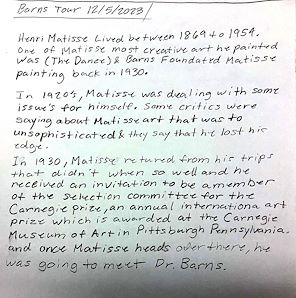 Barns Tour 12/5/2023/
Henri Matisse Lived between 1869 to 1954.
One of Matisse most creative art he painted
was (The Dance) & Barns Foundated Matisse
painting back in 1930.
In 1920's, Matisse was dealing with some
issue's for himself. Some critics were
saying about Matisse art that was to
unsophisticated & they say that he lost his
edge.
In 1930, Matisse retured from his trips
that didn't when so well and he
received an invitation to be amember
of the selection committee for the
Carnegie prize, an annual internationa art
prize which is awarded at the Carnegie
Museum of Art in Pittsburgh Pennsylvania.
and once Matisse heads over there, he
was going to meet Dr. Barns.